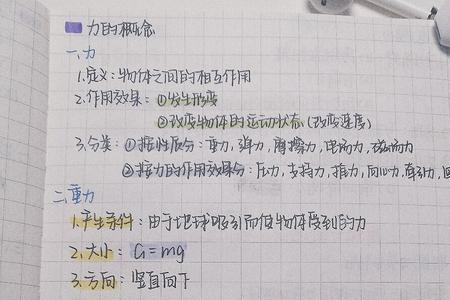 力的概念
一、力
1.定义:物体之间的相互作用
2.作用效果:①发生形变
②改变物体的运动状态(改变速度)
3.分类:①按性质分:重力,弹力,摩擦力,电场力,磁场力
②按力的作用效果分:压力,支持力,推力,向心力,牵引力,回
二.重力
1.产生条件:由于地球吸引而使物体受到的力
2.大小:G=mg
3.方向:竖直向下